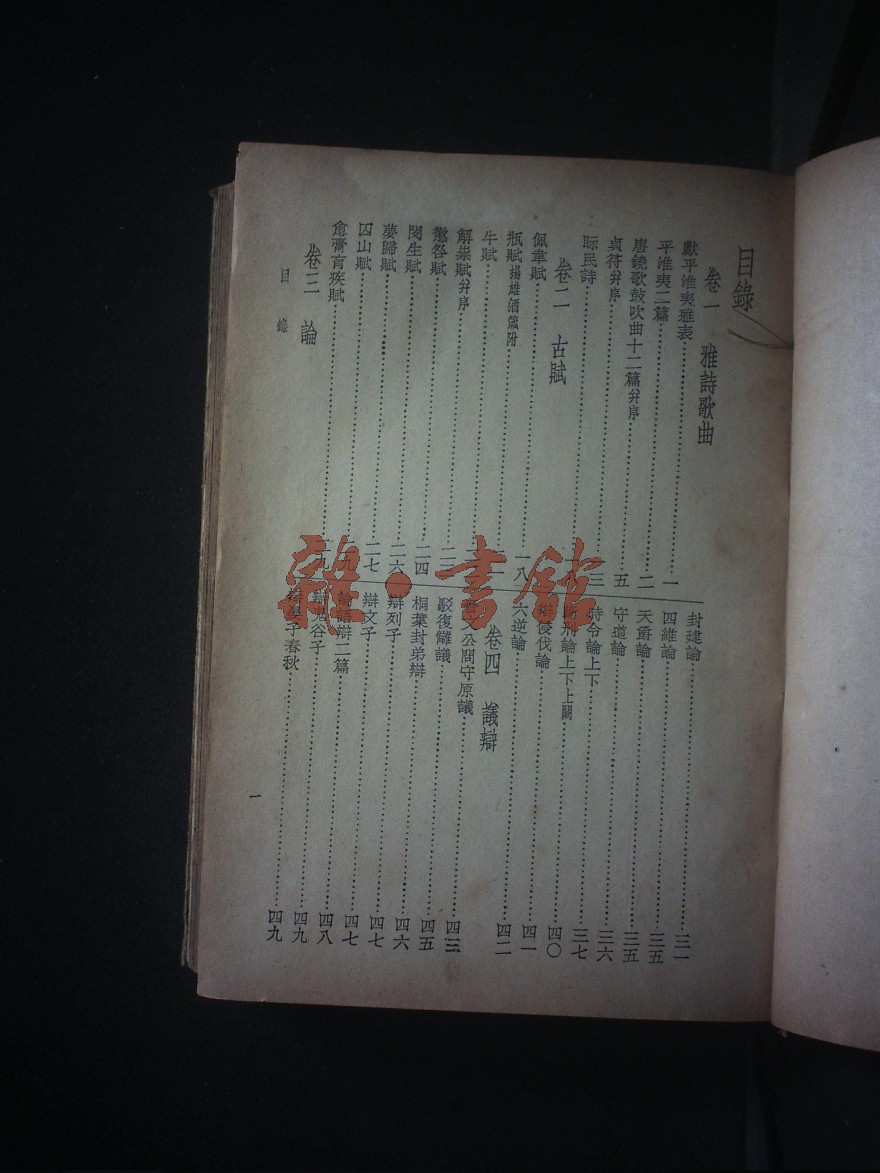 目錄
卷一　雅詩歌曲
獻平淮夷雅表……一
平淮夷二篇……二
唐鐃歌鼓吹曲十二篇幷序……五
貞符幷序……三
眎民詩
卷二　古賦
佩韋賦……一八
瓶賦揚雄酒箴附
牛賦
解祟賦幷序
懲咎賦……二三
閔生賦……二四
夢歸賦……二六
囚山賦……二七
愈膏肓疾賦
卷三　論
封建論……三一
四維論……三五
天爵論……三五
守道論……三六
時令論上下……三七
斷刑論上下上闕……四〇
侵伐論……四一
六逆論……四二
卷四　議辯
文公問守原議……四三
駁復讎議……四五
桐葉封弟辯……四六
辯列子……四七
辯文子……四七
論語辯二篇……四八
辯鬼谷子……四九
子春秋……四九
目錄
一
雜·書館